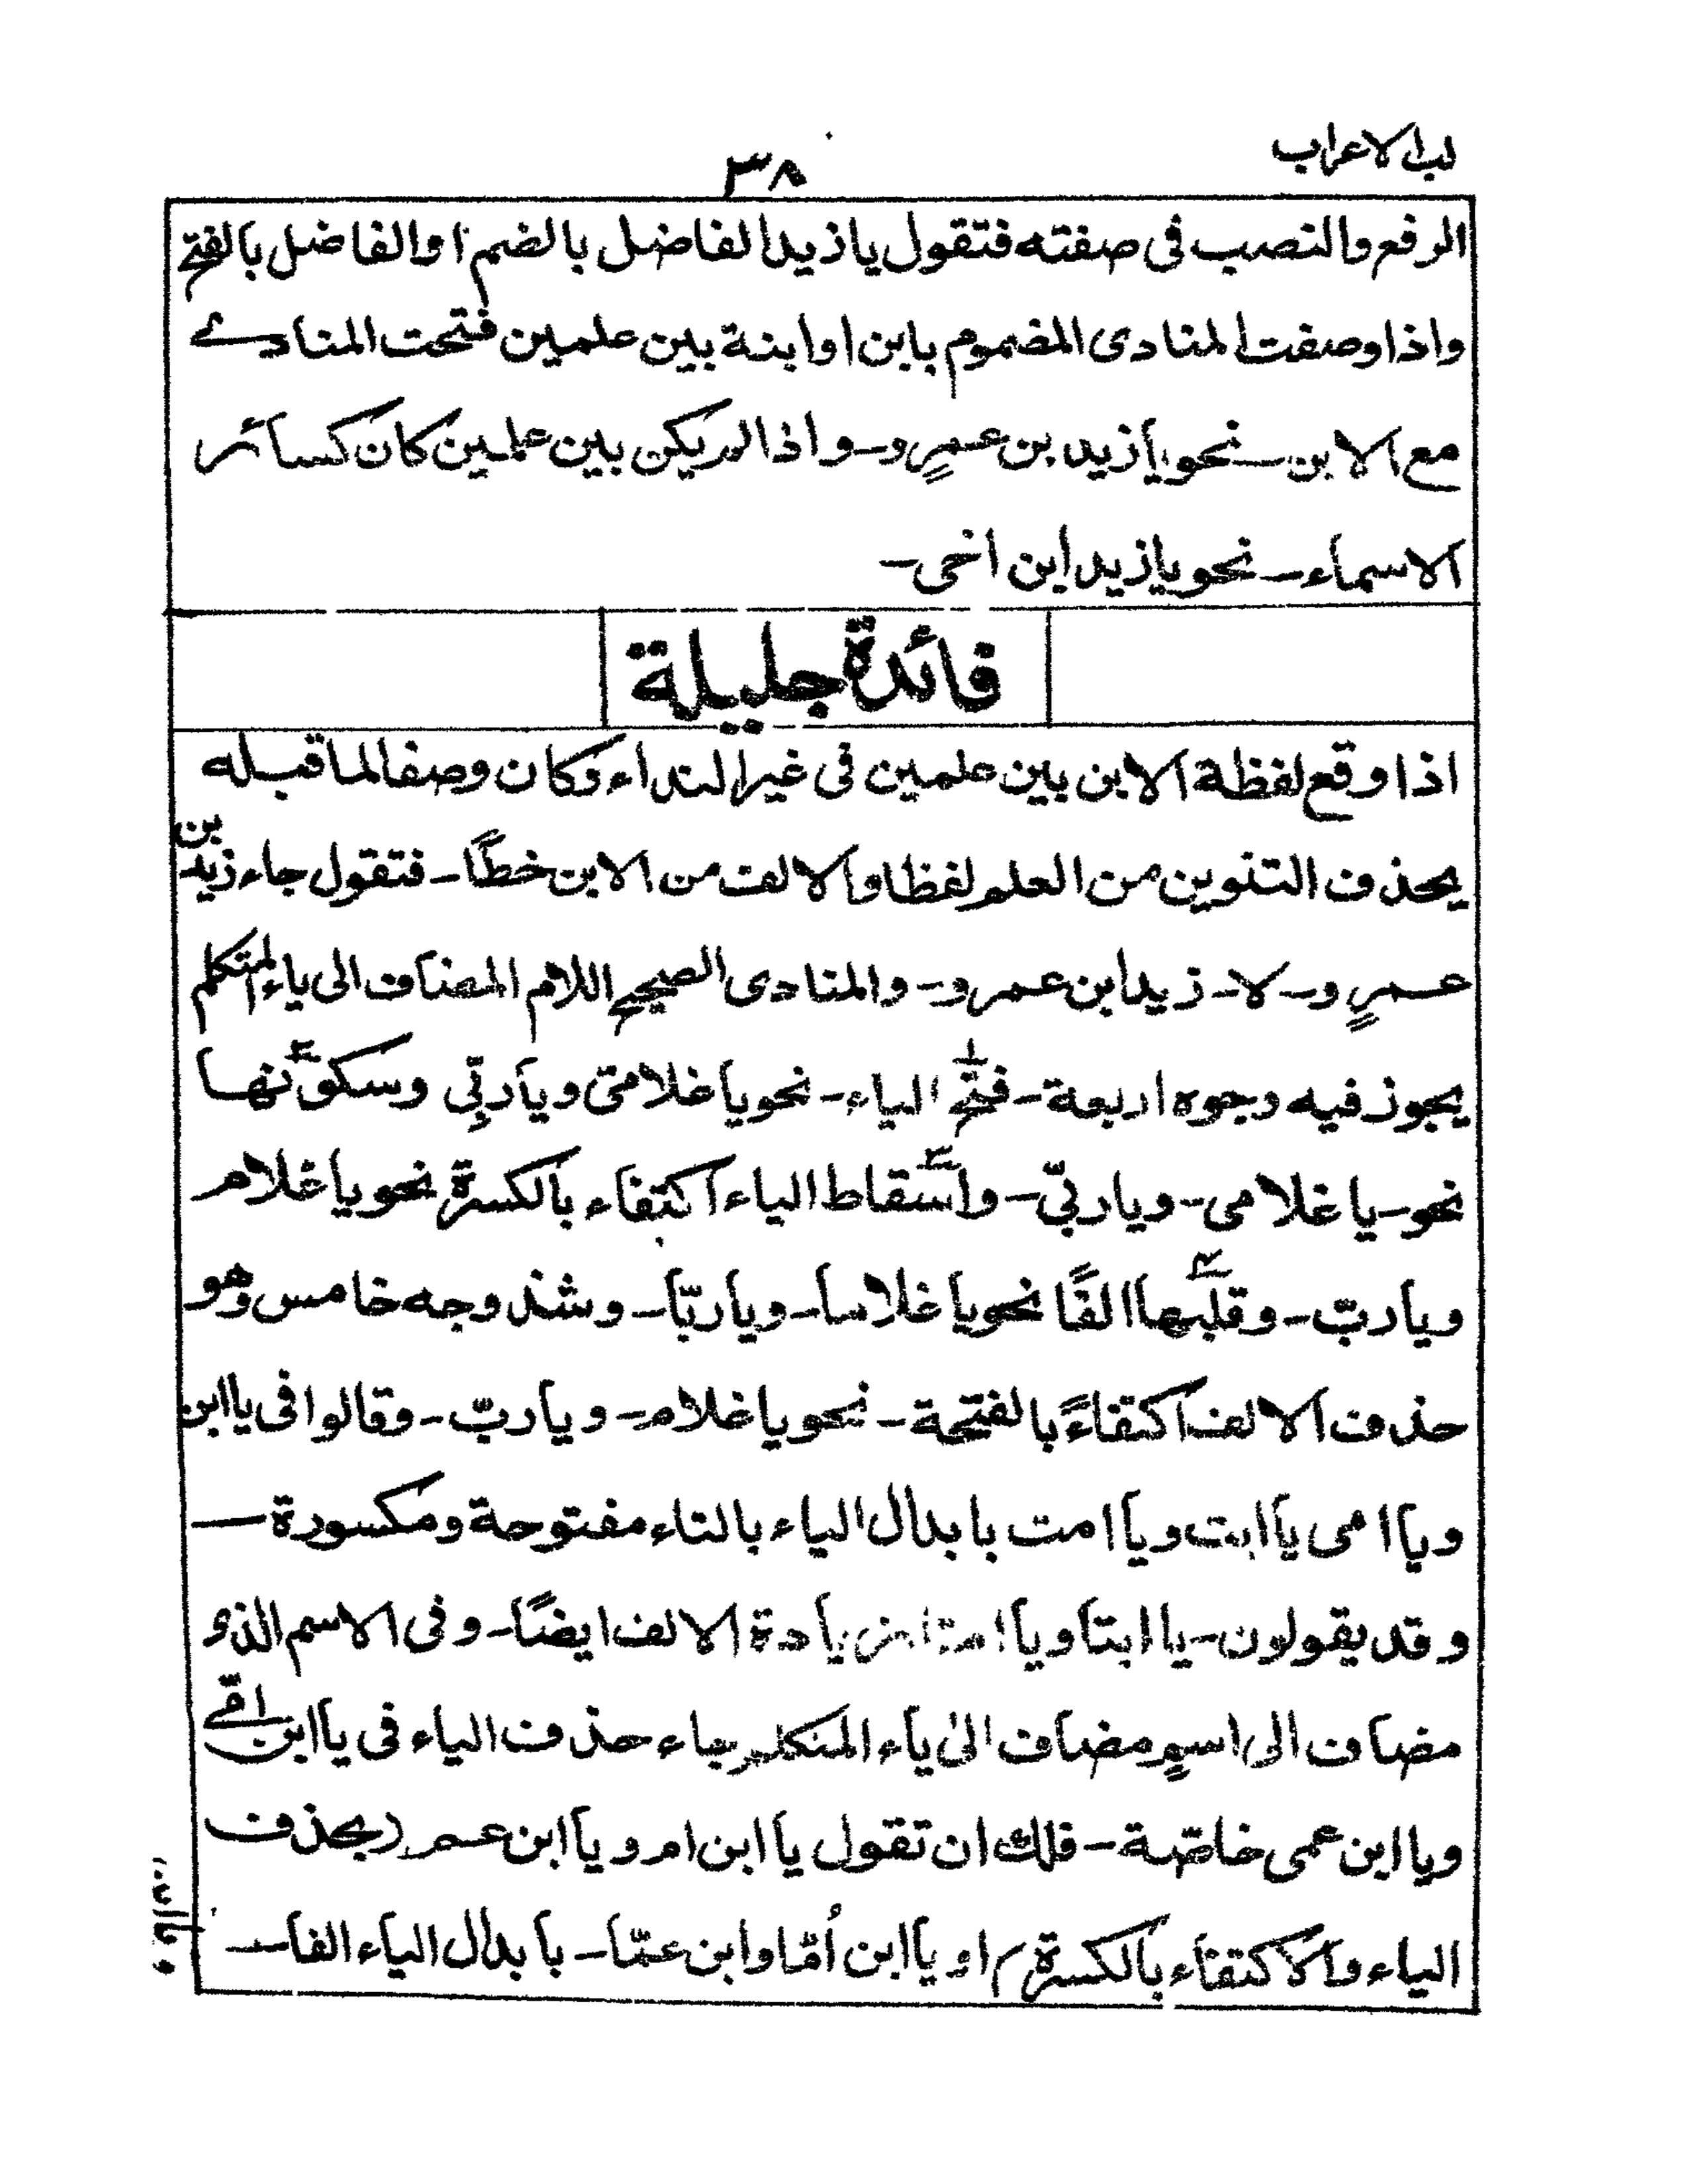 لب الاعراب
٣٨
الرفع والنصب فى صفته فتقول يا زيد الفاضل بالضم او الفاضل بالفتح
واذا وصفت المنادى المضموم بابن او ابنة بين علمين فتحت المنادے
مع الابن ــ نحو يا زيد بن عمرٍو ــ واذا لم يكن بين علمين كان كسائر
الاسماء ــ نحو يا زيد ابن اخى ــ
فائدة جليلة
اذا وقع لفظة الابن بين علمين فى غير النداء وكان وصفا لما قبله
يحذف التنوين من العلم لفظا والالف من الابن خطًا ــ فتقول جاء زيد بن
عمرٍو ــ لا ــ زيد ابن عمرو ــ والمنادى الصحيح اللام المضاف الى ياء المتكلم
يجوز فيه وجوه اربعة ــ فتح١ الياء ــ نحو يا غلامى ويا ربِّى وسكو٢نها
نحو ــ يا غلامى ــ ويا ربّى ــ واسقاط٣ الياء اكتفاء بالكسرة نحو يا غلام
ويا ربّ ــ وقلبها٤ الفًا نحو يا غلاما ــ ويا ربّا ــ وشذ وجه خامس وهو
حذف الالف اكتفاءً بالفتحة ــ نحو يا غلام ــ ويا ربّ ــ وقالوا فى يا ابن
ويا امى يا ابت ويا امت بابدال الياء بالتاء مفتوحة ومكسورة ــ
وقد يقولون ــ يا ابتا ويا امتا بزيادة الالف ايضًا ــ وفى الاسم الذى
مضاف الى اسمٍ مضاف الىٰ ياء المتكلم جاء حذف الياء فى يا ابن امّے
ويا ابن عمى خاصّة ــ فلك ان تقول يا ابن ام ويا ابن عم (بحذف
الياء والاكتفاء بالكسرة) او يا ابن اُمّا وابن عمّا ــ بابدال الياء الفا ــ